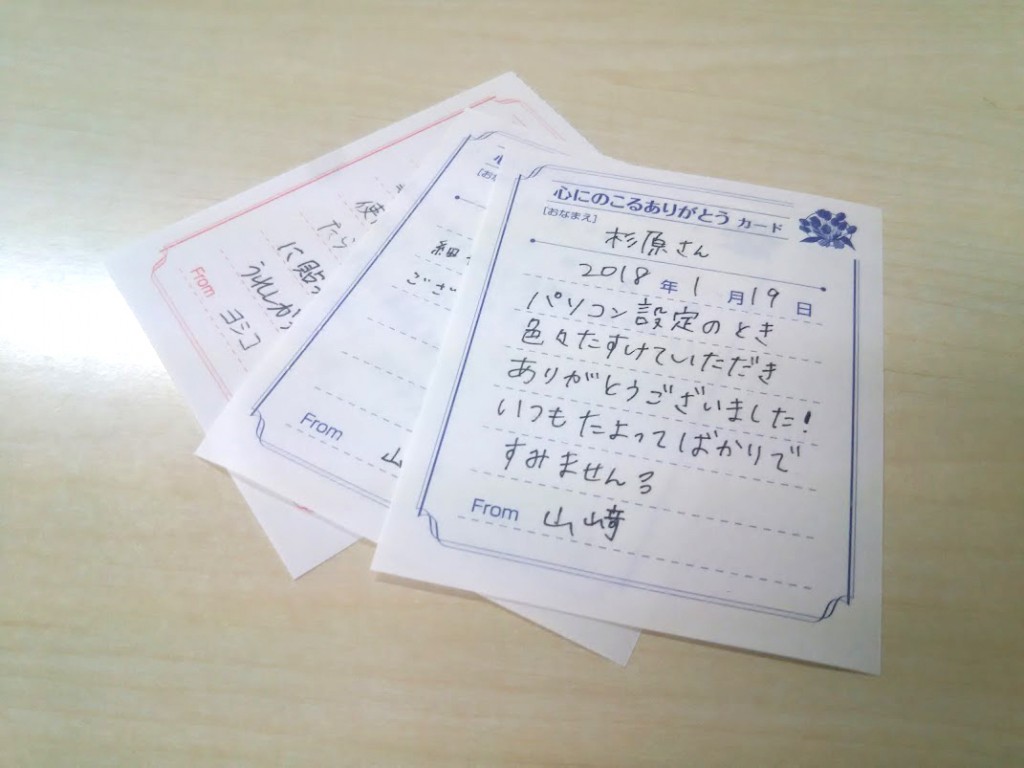 心にのこるありがとう カード
[おなまえ]
杉原さん
2018 年 1 月 19 日
パソコン設定のとき
色々たすけていただき
ありがとうございました!
いつもたよってばかりで
すみません
From 山崎
心
[おな
細
ござ
From 山
使
たら
に貼っ
うれしかっ
From ヨシコ